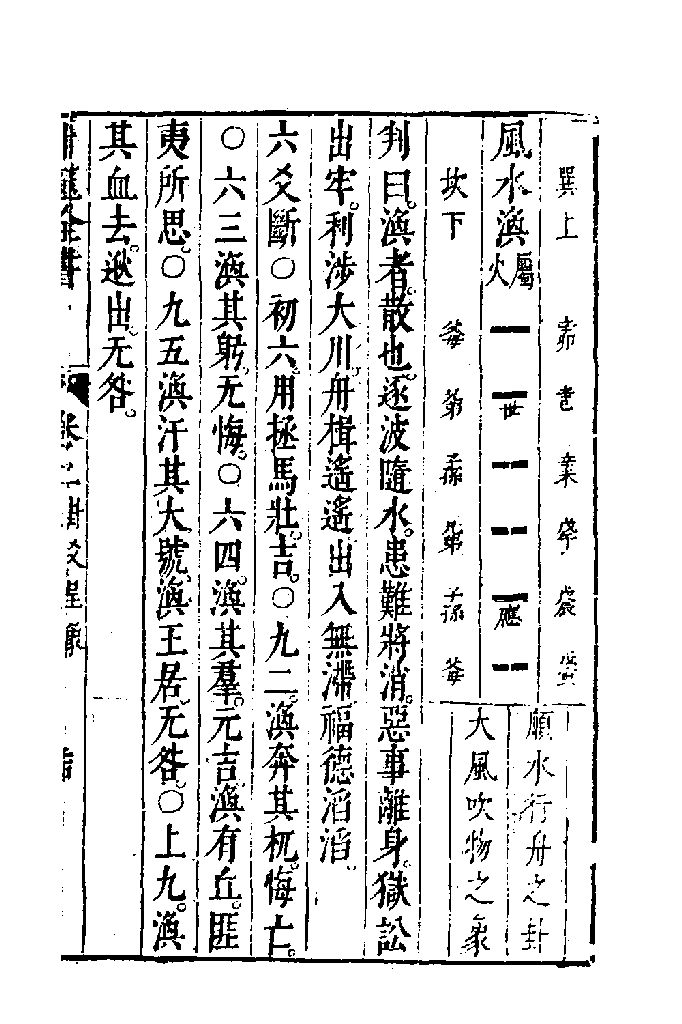 巽上
風水渙屬火 世 應
坎下
順水行舟之卦
大風吹物之象
判曰。渙者。散也。逐波隨水。患難將消。惡事離身。獄訟
出牢。利涉大川。舟楫遙遙。出入無滯。福德滔滔。
六爻斷○初六。用拯馬壯。吉。○九二。渙奔其杌。悔亡。
○六三渙其躬。无悔。○六四。渙其羣。元吉。渙有丘。匪
夷所思。○九五渙汗其大號。渙王居。无咎。○上九。渙
其血去。逖出。无咎。